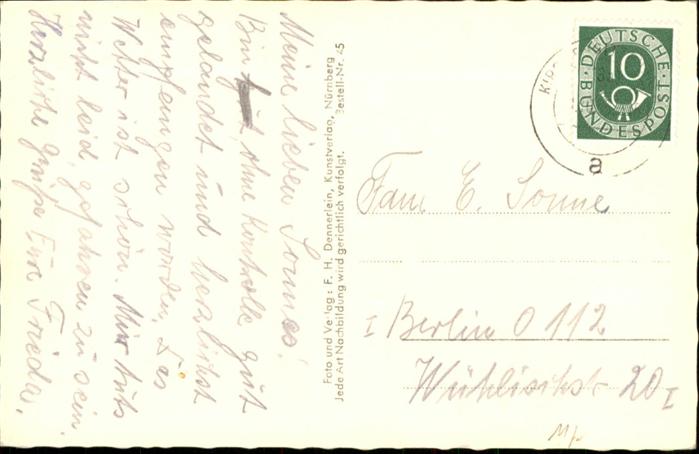 Meine lieben Sonnes!
Bin ohne Kontrolle gut
gelandet und herzlichst
empfangen worden. Das
Wetter ist schön. Mir tuts
nicht leid, gefahren zu sein.
Herzliche Grüße Eure Frieda.
Foto und Verlag: F. H. Dennerlein, Kunstverlag, Nürnberg
Jede Art Nachbildung wird gerichtlich verfolgt. Bestell-Nr. 45
DEUTSCHE
10
BUNDESPOST
a
Fam E. Sonne
I Berlin O 112
20 I